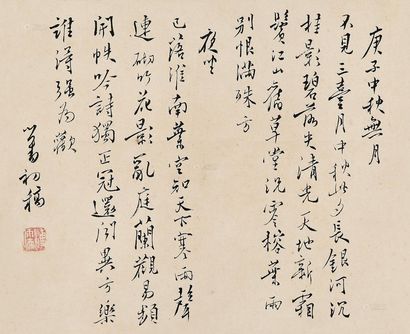 庚子中秋無月
不見三臺月中秋此夕長銀河沉
桂影碧落失清光天地新霜
鬢江山舊草堂況零榕葉雨
別恨滿殊方
夜坐
已落淮南葉空知天下寒雨聲
連砌竹花影亂庭蘭觀易頻
開帙吟詩獨正冠還聞異方樂
誰得強為歡
心畬初稿